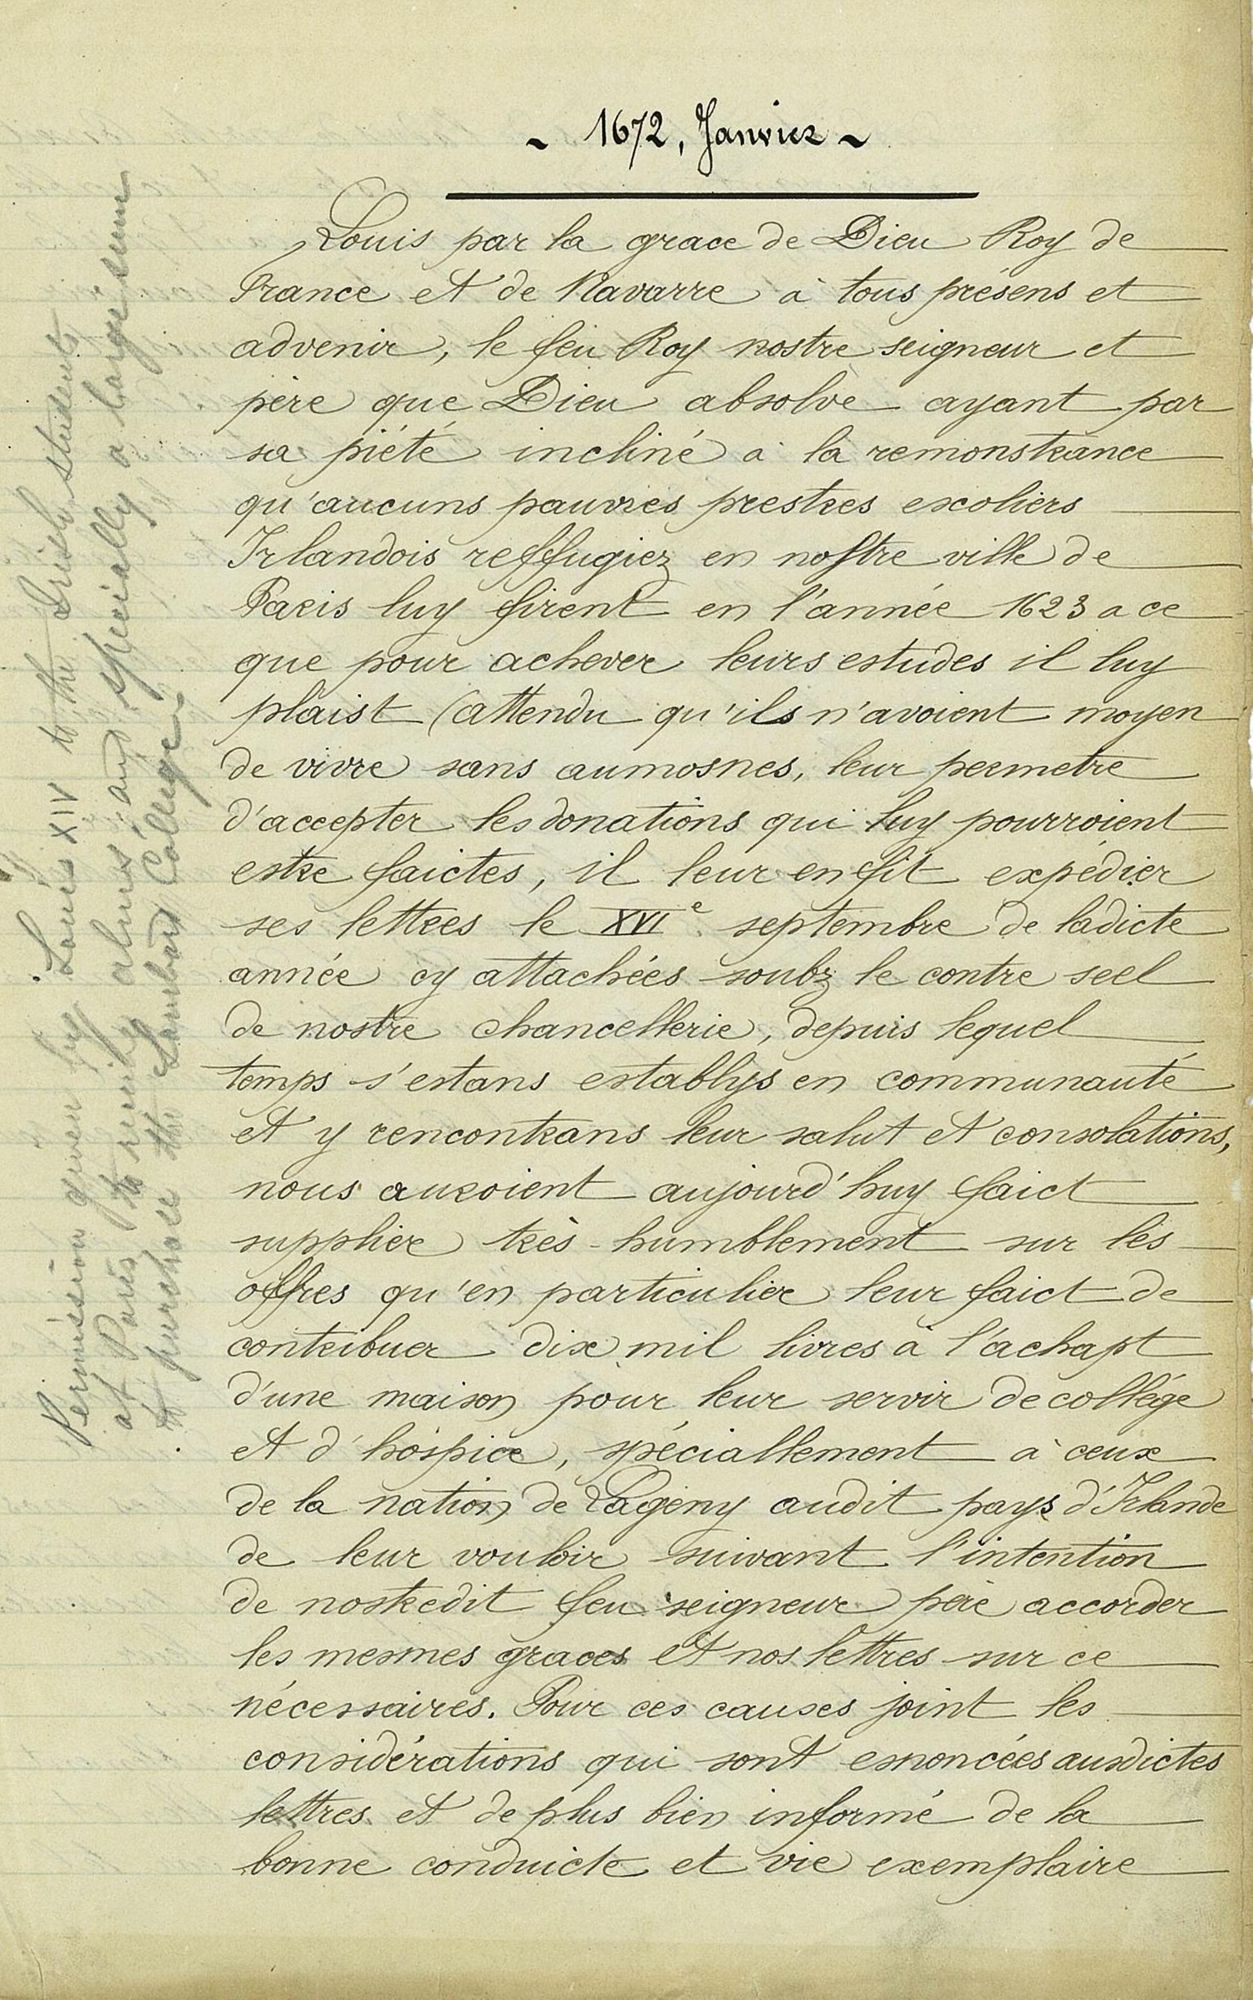 ~ 1672, Janvier ~
Louis par la grace de Dieu Roy de
France et de Navarre à tous présens et
advenir, le feu Roy nostre seigneur et
père que Dieu absolve ayant par
sa piété incliné a la remonstrance
qu'aucuns pauvres prestres escoliers
Irlandois reffugiez en nostre ville de
Paris luy firent en l'année 1623 a ce
que pour achever leurs estudes il luy
plaist (attendu qu'ils n'avoient moyen
de vivre sans aumosnes, leur permetre
d'accepter les donations qui luy pourroient
estre faictes, il leur en fit expédier
ses lettres le XVIe septembre de ladicte
année cy attachées soubz le contre seel
de nostre chancellerie, depuis lequel
temps s'estans establys en communauté
et y rencontrans leur salut et consolations,
nous auroient aujourd'huy faict
supplier très-humblement sur les
offres qu'en particulier leur faict de
contribuer dix mil livres à l'achapt
d'une maison pour leur servir de collége
et d'hospice, spéciallement à ceux
de la nation de Lageny audit pays d'Irlande
de leur vouloir suivant l'intention
de nostredit feu seigneur père accorder
les mesmes graces et nos lettres sur ce
nécessaires. Pour ces causes joint les
considérations qui sont esnoncées ausdictes
lettres et de plus bien informé de la
bonne conduicte et vie exemplaire
Permission given by Louis XIV to the Irish students
at Paris to receive alms and specially a large sum
to purchase the Lombard College.